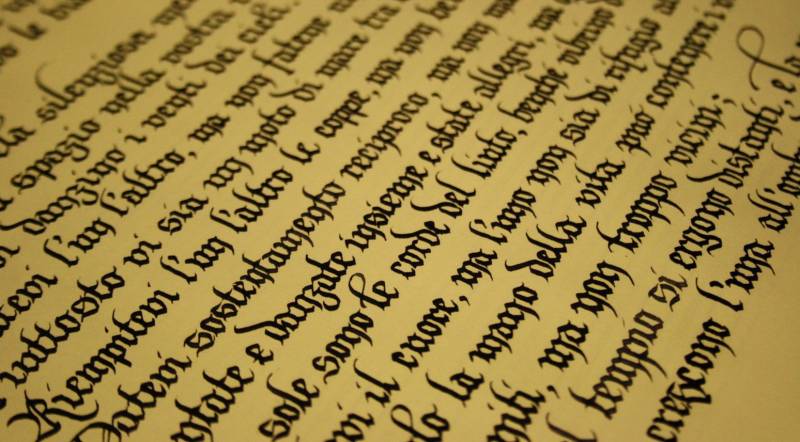 silenziosa
spazio nella vostra
danzino i venti dei cieli.
atevi l'un l'altro, ma non fatene
iuttosto vi sia un moto di mare tra
Riempitevi l'un l'altro le coppe, ma non be
Datevi sostentamento reciproco, ma non
ntate e danzate insieme e state allegri, ma
sole sono le corde del liuto, benche vibrino
vi il cuore, ma l'uno non sia di rifugio al
lo la mano della vita può contenere i
niti, ma non troppo vicini;
l tempio si ergono distanti, e la
crescono l'una all'omb